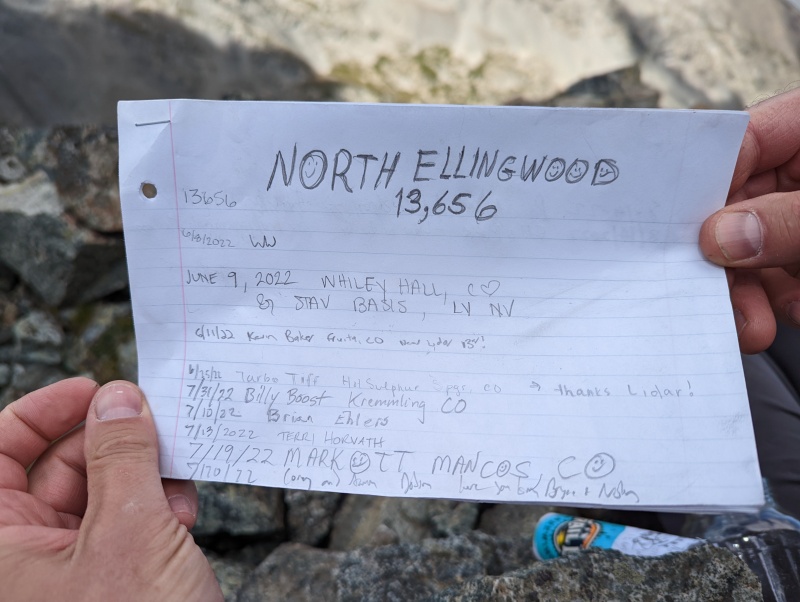 NORTH ELLINGWOOD
13,656
13656
6/8/2022 WW
JUNE 9, 2022 WHILEY HALL, C♡
& STAV BASIS, LV NV
6/11/22 Kevin Baker Fruita, CO new Lidar 13er!
6/25/22 Turbo Tiff Hot Sulphur Spgs. CO → thanks Lidar!
7/31/22 Billy Boost Kremmling CO
7/10/22 Brian Ehlers
7/13/2022 TERRI HORVATH
7/19/22 MARK OTT MANCOS CO
7/20/22